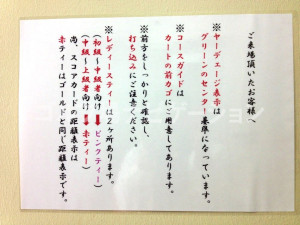 ご来場頂いたお客様へ
※ヤーデェージ表示は
グリーンのセンター基準になっています。
※コースガイドは
カートの前カゴにご用意してあります。
※前方をしっかりと確認し、
打ち込みにご注意ください。
※レディースティーは2ヶ所あります。
(初級～中級者向け➡ピンクティー)
(中級～上級者向け➡赤ティー)
尚、スコアカードの距離表示は
赤ティーはゴールドと同じ距離表示です。